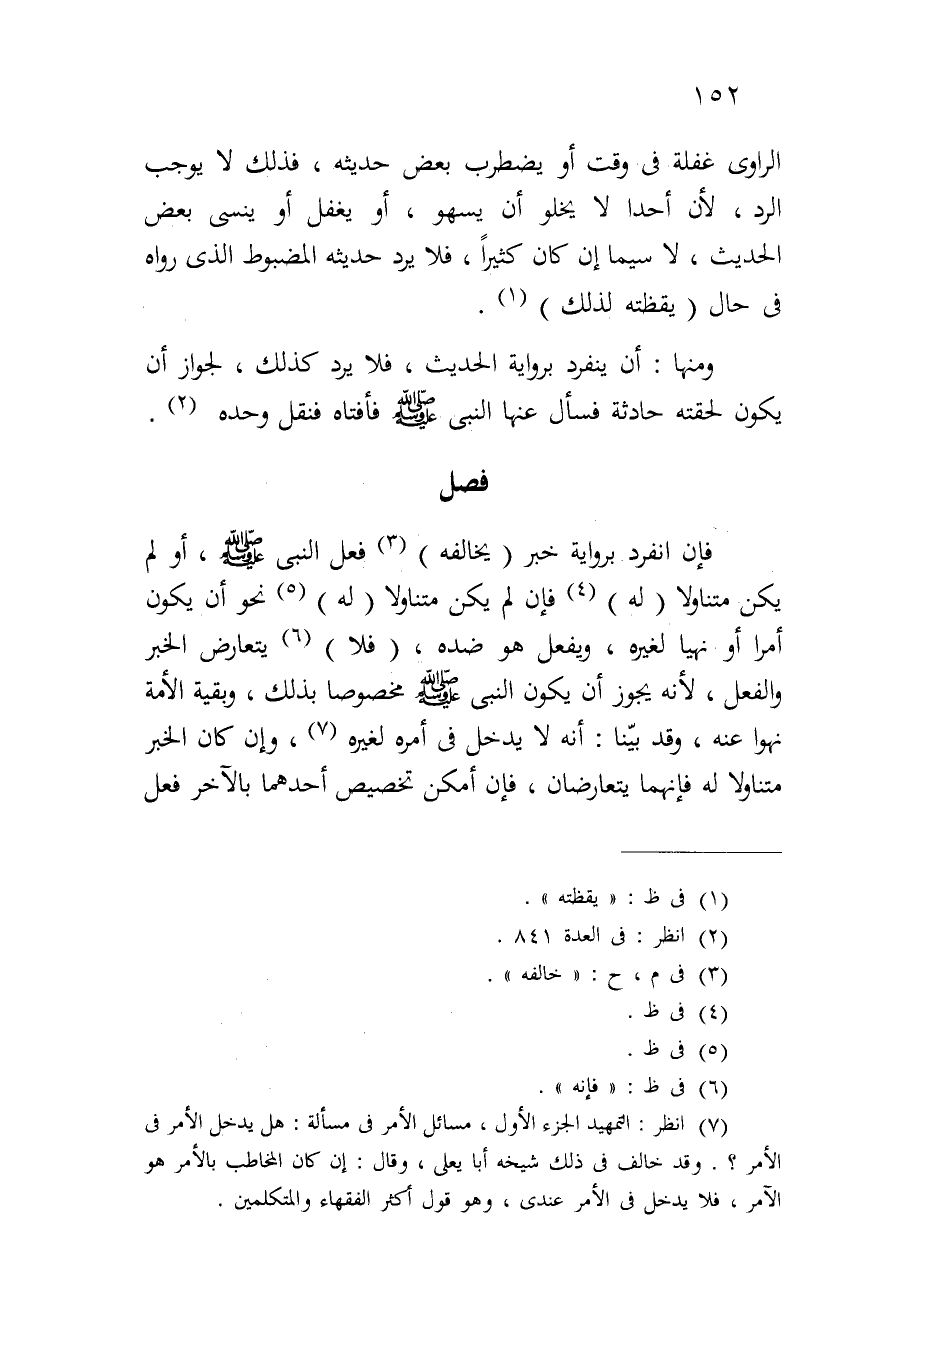 ١٥٢
الراوى غفلة فى وقت أو يضطرب بعض حديثه ، فذلك لا يوجب
الرد ، لأن أحدا لا يخلو أن يسهو ، أو يغفل أو ينسى بعض
الحديث ، لا سيما إن كان كثيراً ، فلا يرد حديثه المضبوط الذى رواه
فى حال ( يقظته لذلك ) (١) .
ومنها : أن ينفرد برواية الحديث ، فلا يرد كذلك ، لجواز أن
يكون لحقته حادثة فسأل عنها النبى ﷺ فأفتاه فنقل وحده (٢) .
فصل
فإن انفرد برواية خبر ( يخالفه ) (٣) فعل النبى ﷺ ، أو لم
يكن متناولا ( له ) (٤) فإن لم يكن متناولا ( له ) (٥) نحو أن يكون
أمرا أو نهيا لغيره ، ويفعل هو ضده ، ( فلا ) (٦) يتعارض الخبر
والفعل ، لأنه يجوز أن يكون النبى ﷺ مخصوصا بذلك ، وبقية الأمة
نهوا عنه ، وقد بيّنا : أنه لا يدخل فى أمره لغيره (٧) ، وإن كان الخبر
متناولا له فإنهما يتعارضان ، فإن أمكن تخصيص أحدهما بالآخر فعل
(١) فى ظ : « يقظته » .
(٢) انظر : فى العدة ٨٤١ .
(٣) فى م ، ح : « خالفه » .
(٤) فى ظ .
(٥) فى ظ .
(٦) فى ظ : « فإنه » .
(٧) انظر : التمهيد الجزء الأول ، مسائل الأمر فى مسألة : هل يدخل الأمر فى
الأمر ؟ . وقد خالف فى ذلك شيخه أبا يعلى ، وقال : إن كان المخاطب بالأمر هو
الآمر ، فلا يدخل فى الأمر عندى ، وهو قول أكثر الفقهاء والمتكلمين .